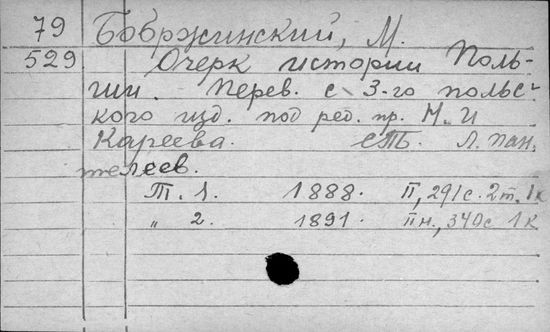 79 Бобржинский, М.
529 Очерк истории Поль-
ши. Перев. с 3-го польс-
кого изд. под ред. пр. Н. И
Кареева. СПб. Л. Пан,
телеев.
Т. 1. 1888. П, 291 с. 2 т. 1 к
" 2. 1891. Пн., 340 с 1 к